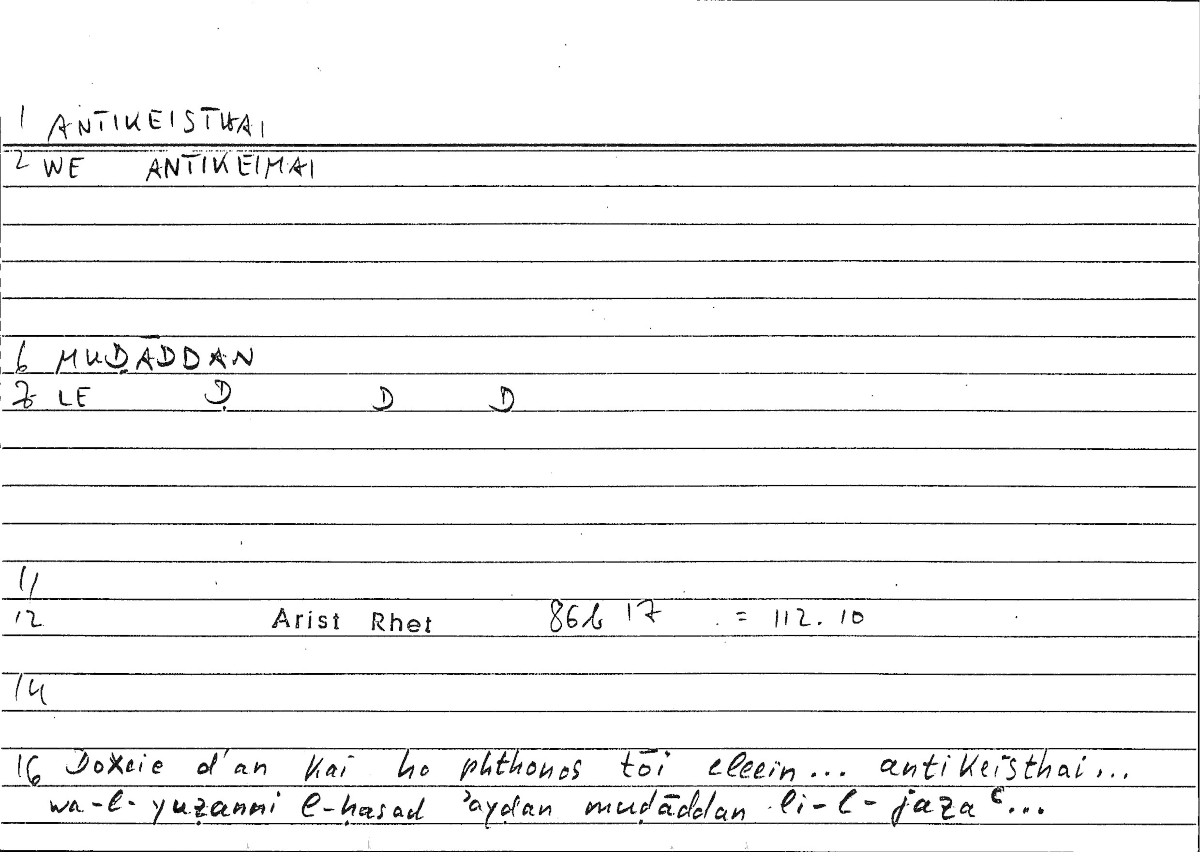 1 ANTIKEISTHAI
2 WE ANTIKEIMAI
6 MUḌĀDDAN
7 LE Ḍ D D
11
12 Arist Rhet 86b 17 = 112.10
14
16 Doxeie d'an kai ho phthonos tōi eleein... antikeisthai...
wa-l-yuẓanni l-ḥasad ʾayḍan muḍāddan li-l-jazaʿ...